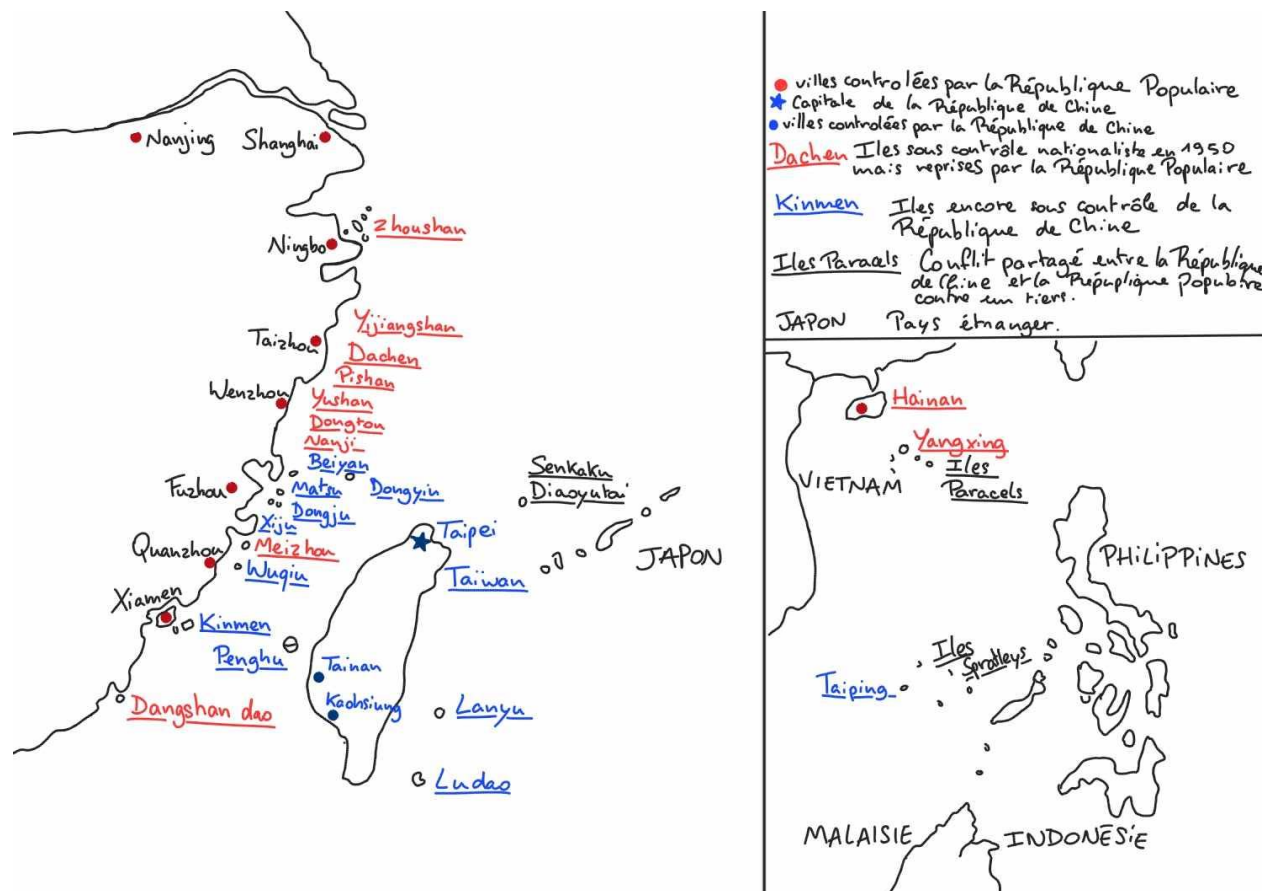 Nanjing
Shanghai
Zhoushan
Ningbo
Yijiangshan
Taizhou
Dachen
Pishan
Wenzhou
Yushan
Dongtou
Nanji
Beiyan
Senkaku
Fuzhou
Matsu
Dongyin
Diaoyutai
Dongju
Xiju
Taipei
Meizhou
Quanzhou
JAPON
Wuqiu
Taïwan
Xiamen
Kinmen
Penghu
Tainan
Kaohsiung
Dangshan dao
Lanyu
Ludao
villes controlées par la République Populaire
Capitale de la République de Chine
villes controlées par la République de Chine
Dachen Iles sous contrôle nationaliste en 1950
mais reprises par la République Populaire
Kinmen Iles encore sous contrôle de la
République de Chine
Iles Paracels Conflit partagé entre la République
de Chine et la Répuplique Populaire
contre un tiers.
JAPON Pays étranger.
Hainan
Yangxing
VIETNAM
Iles
Paracels
PHiLiPPINES
Iles
Spratleys
Taiping
MALAISIE
INDONÉSiE